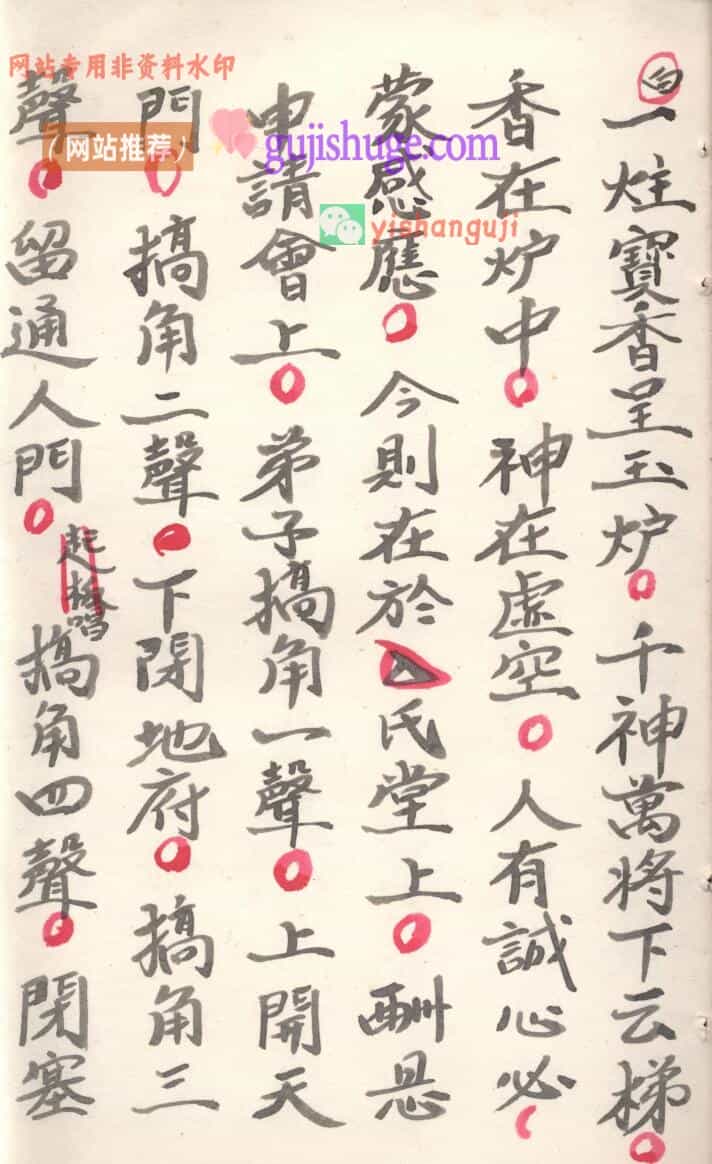 白
一炷寶香呈玉炉千神萬将下云梯
香在炉中神在虛空人有誠心必
蒙感應今則在於厶氏堂上酬恩
申請會上弟子搞角一聲上開天
門搞角二聲下閉地府搞角三
聲留通人門
起板唱
搞角四聲閉塞
网站专用非资料水印
(网站推荐)
gujishuge.com
yishanguji